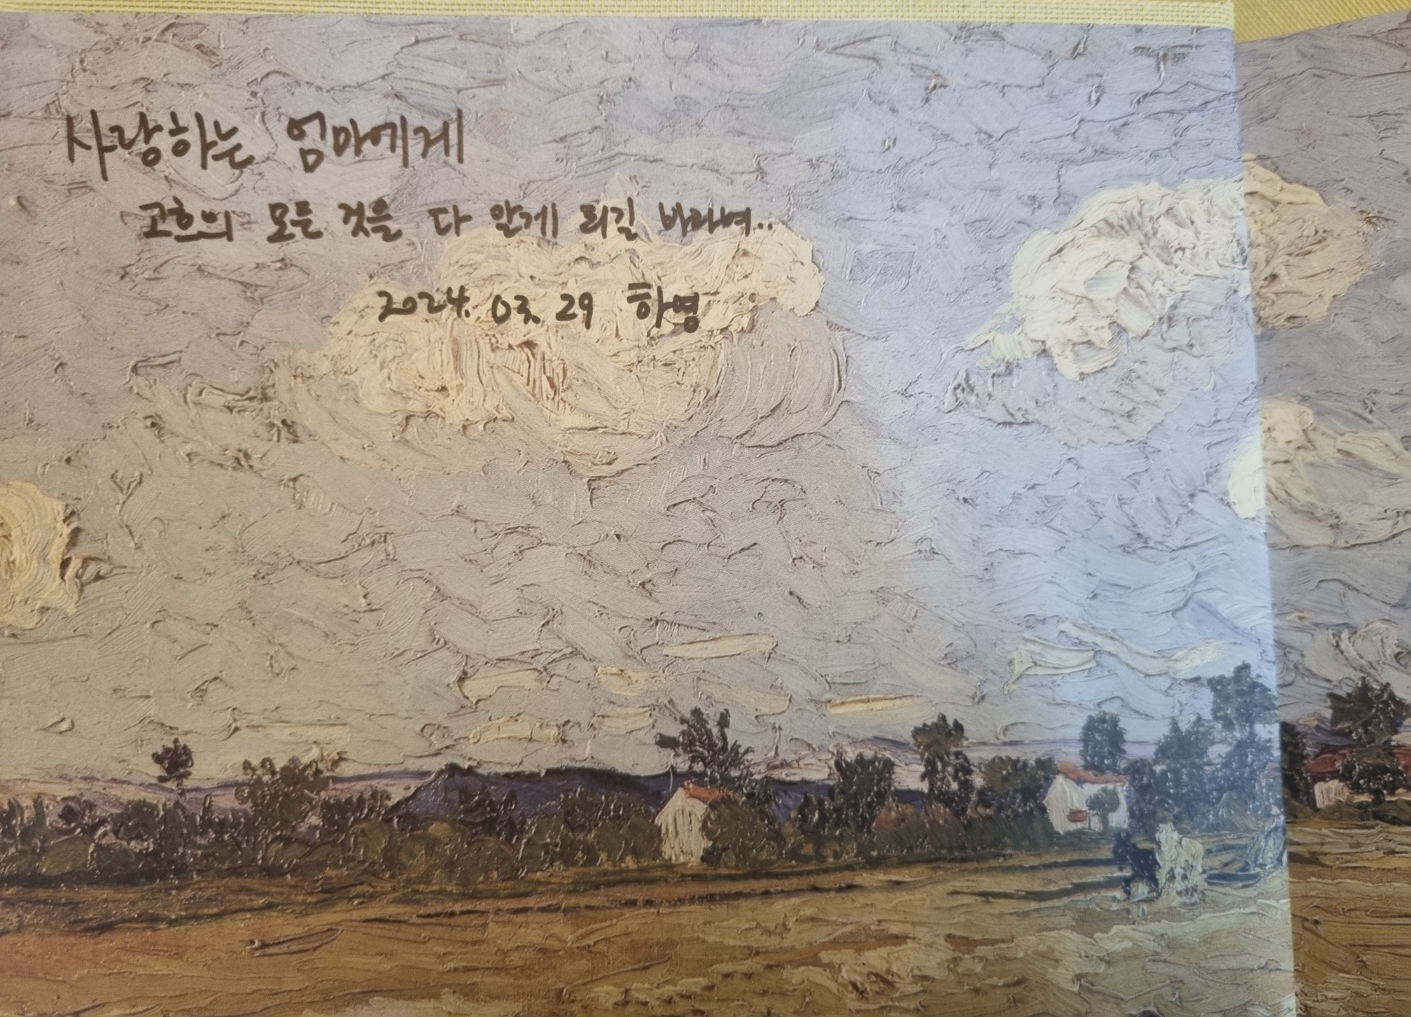 사랑하는 엄마에게
고흐의 모든 것을 다 알게 되길 바라며..
2024. 03. 29 하영